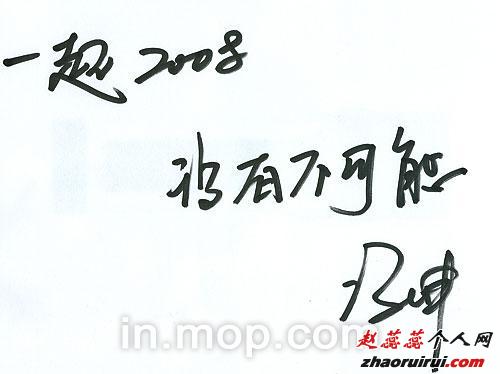 一起2008
没有不可能
冯坤
in.mop.com
赵蕊蕊个人网
zhaoruirui.com